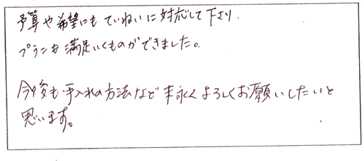 予算や希望にもていねいに対応して下さり、
プランも満足いくものができました。
今後も手入れの方法など末永くよろしくお願いしたいと
思います。